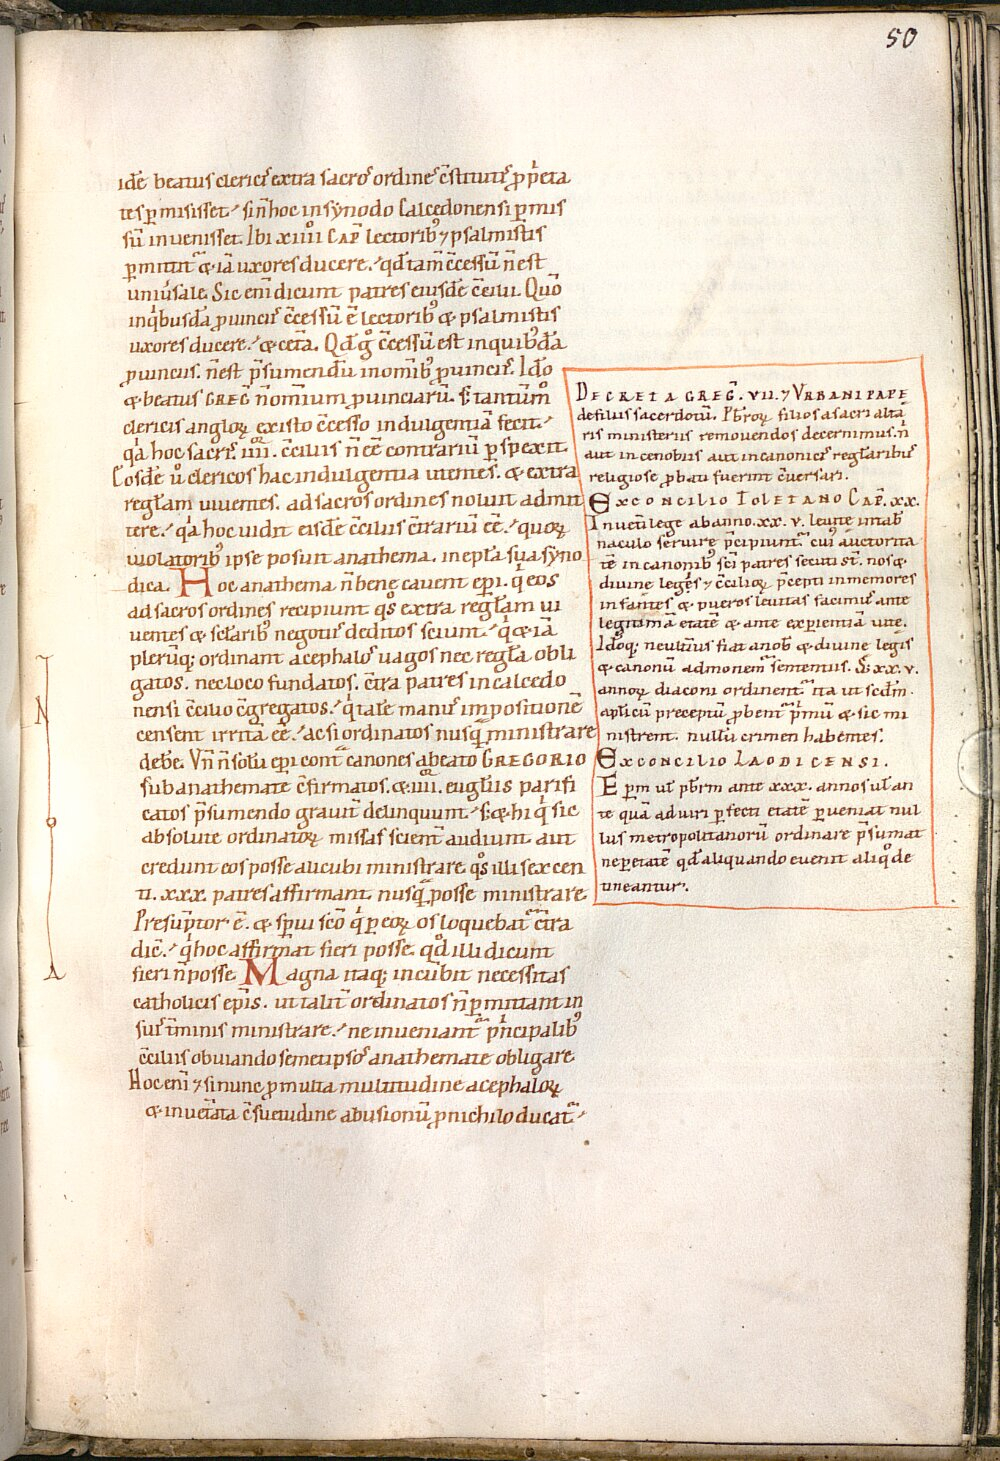 50
idē beatus clericis extra sacros ordines c̄stitutis ꝓ pietate
tes ꝑmisisset. si n̄ hoc in synodo Calcedonensi ꝑmis
sū invenisset. Ibi xiiii CAP̄ lectoribꝫ ⁊ psalmistis
ꝑmittit᷑ & iā uxores ducere. qđ tam̄ c̄cessū n̄ est
uniu̓sale. Sic eni̅ dicunt patres eiusdē c̄cilii. Quō
inqͥbusdā ꝓvinciis c̄cessū ē lectoribꝫ & psalmistis
uxores ducere. & cet̄a. Qđ g̊ c̄cessū est in quibꝰdā
ꝓvinciis. n̄ est p̄sumendū in om̄ibꝫ ꝓvinciis. Idōo
& beatus GREḠ n̄ omniū ꝓvinciarū. sꝫ tantūmo̊
clericis angloꝝ ex isto c̄cesso indulgentiā fecit.
qͥa hoc sacris iiii. c̄ciliis n̄ eē contrariū ꝑspexit.
Eosdē ů clericos hac indulgentia utentes. & extra
regl̄am viventes. ad sacros ordines noluit admit
tere. qͥa hoc vidit eisdē c̄ciliis c̄trariū eē. quoꝝ
violatoribꝫ ipse posuit anathema. in epl̄a sua syno
dica. Hoc anathema n̄ bene cavent ep̄i. qͥ eos
ad sacros ordines recipiunt qͦs extra regl̄am vi
ventes & scl̄aribꝫ negotiis deditos sciunt. qͥ & iā
plerūqꝫ ordinant acephalos vagos nec regl̄a obli
gatos. nec loco fundatos. c̄tra patres in calcedo
nensi c̄cilio c̄gregatos. qͥ tale manus impositionē
censent irritā eē. ac si ordinatos nusqͣ ministrare
debē. Vn̄ n̄ solū ep̄i cont᷑ canones a beato GREGORIO
sub anathemate c̄firmatos. & iiii. eug̅liis parifi
catos p̄sumendo gravit̄ delinquunt. sꝫ & hi qͥ sic
absolute ordinatoꝝ missas scient᷑ audiunt aut
credunt eos posse alicubi ministrare qͦs illi sexcen
ti. xxx. patres affirmant nusqͣ posse ministrare
Presūptor ē. & spui scō qͥ ꝑ eoꝝ os loquebat᷑ c̄tra
dic̄. qͥ hoc affirmat fieri posse. qđ illi dicunt
fieri n̄ posse. Magna itaqꝫ incūbit necessitas
catholicis ep̄is. ut talit̄ ordinatos n̄ ꝑmittant in
suis t̄minis ministrare. ne inveniant᷑ pͥncipalibꝫ
c̄ciliis obviando semetipsos anathemate obligare
Hoc eni̅ ⁊ si nunc ꝓ multa multitudine acephaloꝝ
& invet̄ata c̄suetudine abusionū ꝓ nichilo ducat᷑.
DECRETA GREḠ. VII. ⁊ URBANI PAPE
de filiis sacerdotū. Pb̄roꝝ filios a sacri alta
ris ministeriis removendos decernimus. n̄
aut in cenobiis aut in canonicis regl̄aribꝰ
religiose ꝓbati fuerint c̄versari.
EX CONCILIO TOLETANO CAP̄. XX.
In vet̄i lege ab anno. xx. v. levite in tab̄
naculo servire p̄cipiunt᷑. cuiꝰ auctorita
tē in canonibꝫ sc̄i patres secuti st̄. nos &
divine legis ⁊ c̄cilioꝝ p̄cepti inmemores
infantes & pueros levitas facimus ante
legitimā etatē & ante experientiā vite.
Idōqꝫ ne ulteriꝰ fiat a nob̄ & divine legis
& canonū admonem᷑ sententiis. S̄ xx. v.
annoꝝ diaconi ordinent᷑ ita ut scd̄m.
apl̄icū preceptū ꝓbent᷑ pͥmū & sic mi
nistrent. nullū crimen habentes.
EX CONCILIO LAODICENSI.
Ep̄m ul̄ pb̄rm ante xxx. annos ul̄ an
te quā ad viri ꝑfecti etatē ꝑveniat nul
lus metropolitanorū ordinare p̄sumat
ne ꝑ etatē qđ aliquando evenit aliqͦ de
tineantur.
N